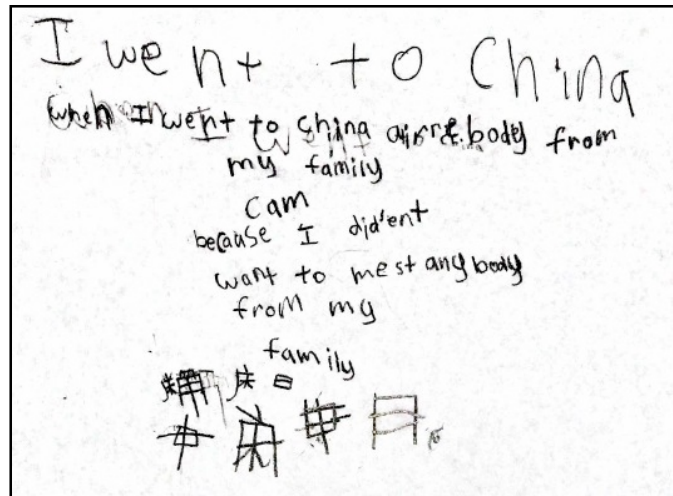 I went to China
when I went to china airre.body from
my family
cam
because I did'ent
want to mest any body
from my
family